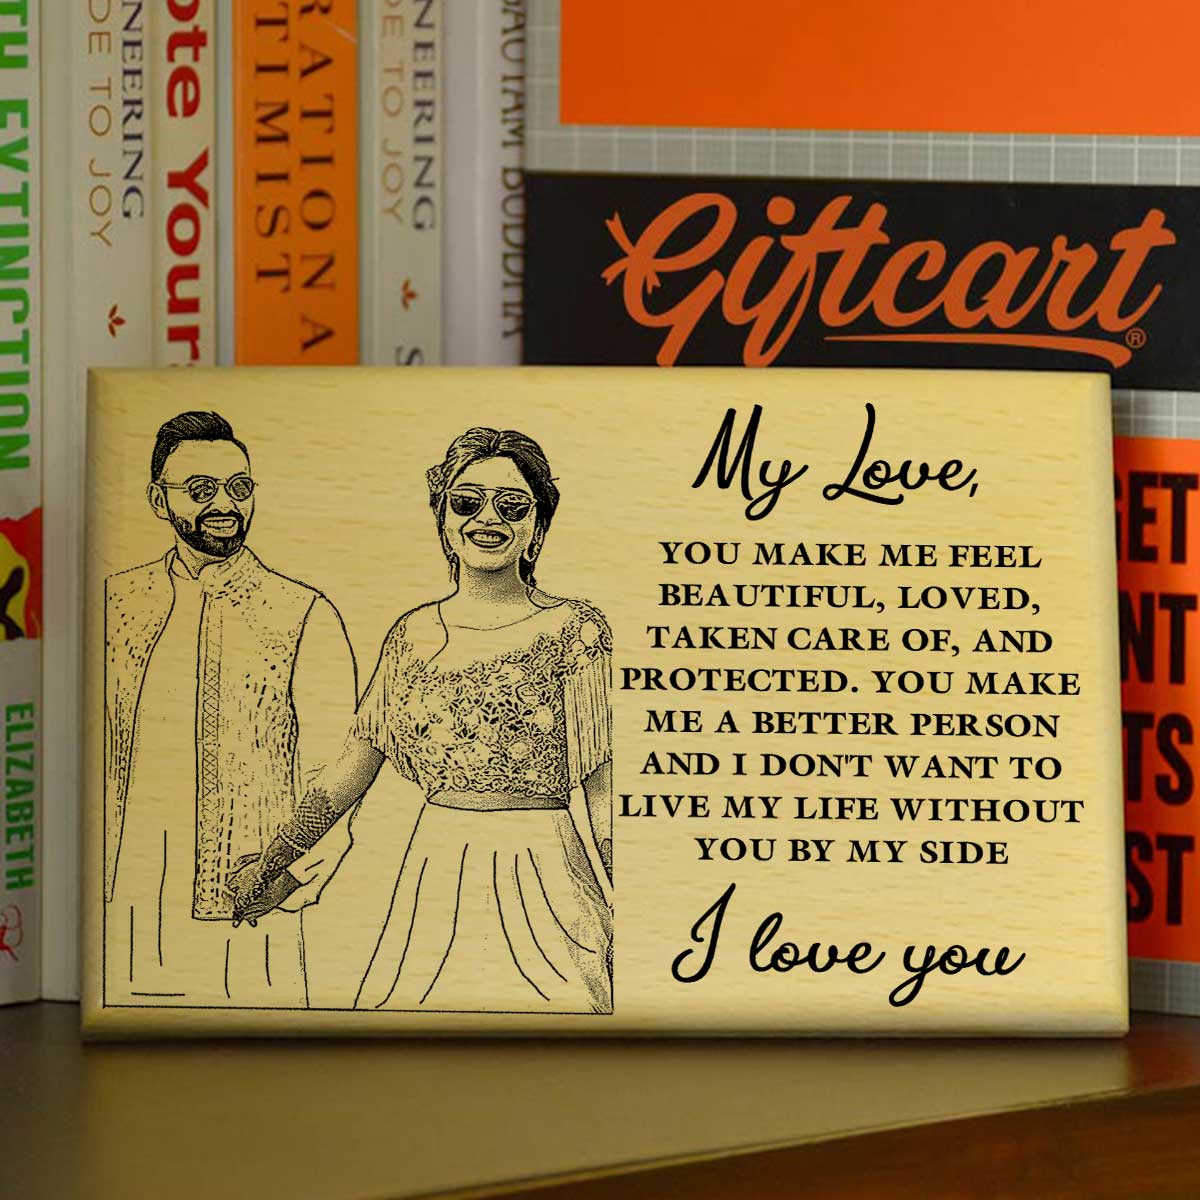 TH EXTINCTION
ELIZABETH
NEERING
DE TO JOY
ote Your
RATION A
TIMIST
NEERING
DE TO JOY
S
GAUTAM BUDDHA
Giftcart®
GET
NT
TS
ST
My Love,
YOU MAKE ME FEEL
BEAUTIFUL, LOVED,
TAKEN CARE OF, AND
PROTECTED. YOU MAKE
ME A BETTER PERSON
AND I DON'T WANT TO
LIVE MY LIFE WITHOUT
YOU BY MY SIDE
I love you